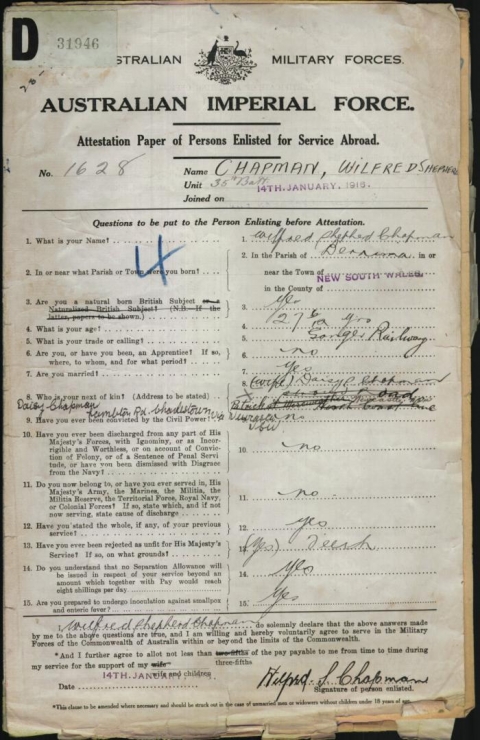 D 31946
AUSTRALIAN MILITARY FORCES.
AUSTRALIAN IMPERIAL FORCE.
Attestation Paper of Persons Enlisted for Service Abroad.
No. 1628 Name CHAPMAN, WILFRED SHEPHERD
Unit 35th Batt
Joined on 14TH.JANUARY, 1916.
Questions to be put to the Person Enlisting before Attestation.
4
1. What is your Name? 1. Wilfred Shepherd Chapman
2. In or near what Parish or Town were you born? 2. In the Parish of in or
near the Town of
in the County of NEW SOUTH WALES.
3. Are you a natural born British Subject or a 3. Yes
Naturalized British Subject? (N.B.—If the
latter, papers to be shown.)
4. What is your age? 4. 27 yrs
5. What is your trade or calling? 5. Railway
6. Are you, or have you been, an Apprentice? If so, 6. no
where, to whom, and for what period?
7. Are you married? 7. Yes
8. Who is your next of kin? (Address to be stated) 8. (wife) Daisy Chapman
Daisy Chapman
Lambton Rd Charlestown
9. Have you ever been convicted by the Civil Power? 9. no
NSW
10. Have you ever been discharged from any part of His 10. no
Majesty's Forces, with Ignominy, or as Incor-
rigible and Worthless, or on account of Convic-
tion of Felony, or of a Sentence of Penal Servi-
tude, or have you been Dismissed with Disgrace
from the Navy?
11. Do you now belong to, or have you ever served in, His 11. no
Majesty's Army, the Marines, the Militia, the
Militia Reserve, the Territorial Force, Royal Navy,
or Colonial Forces? If so, state which, and if not
now serving, state cause of discharge
12. Have you stated the whole, if any, of your previous 12. yes
service?
13. Have you ever been rejected as unfit for His Majesty's 13. (Yes) Teeth
Service? If so, on what grounds?
14. Do you understand that no Separation Allowance will 14. Yes
be issued in respect of your service beyond an
amount which together with Pay would reach
eight shillings per day.
15. Are you prepared to undergo inoculation against smallpox 15. Yes
and enteric fever?
I, Wilfred Shepherd Chapman do solemnly declare that the above answers made
by me to the above questions are true, and I am willing and hereby voluntarily agree to serve in the Military
Forces of the Commonwealth of Australia within or beyond the limits of the Commonwealth.
*And I further agree to allot not less than two-fifths of the pay payable to me from time to time during
three-fifths
my service for the support of my wife
wife and children
Date 14TH.JANUARY Wilfred S Chapman
Signature of person enlisted.
*This clause to be amended where necessary and should be struck out in the case of unmarried men or widowers without children under 18 years of age.